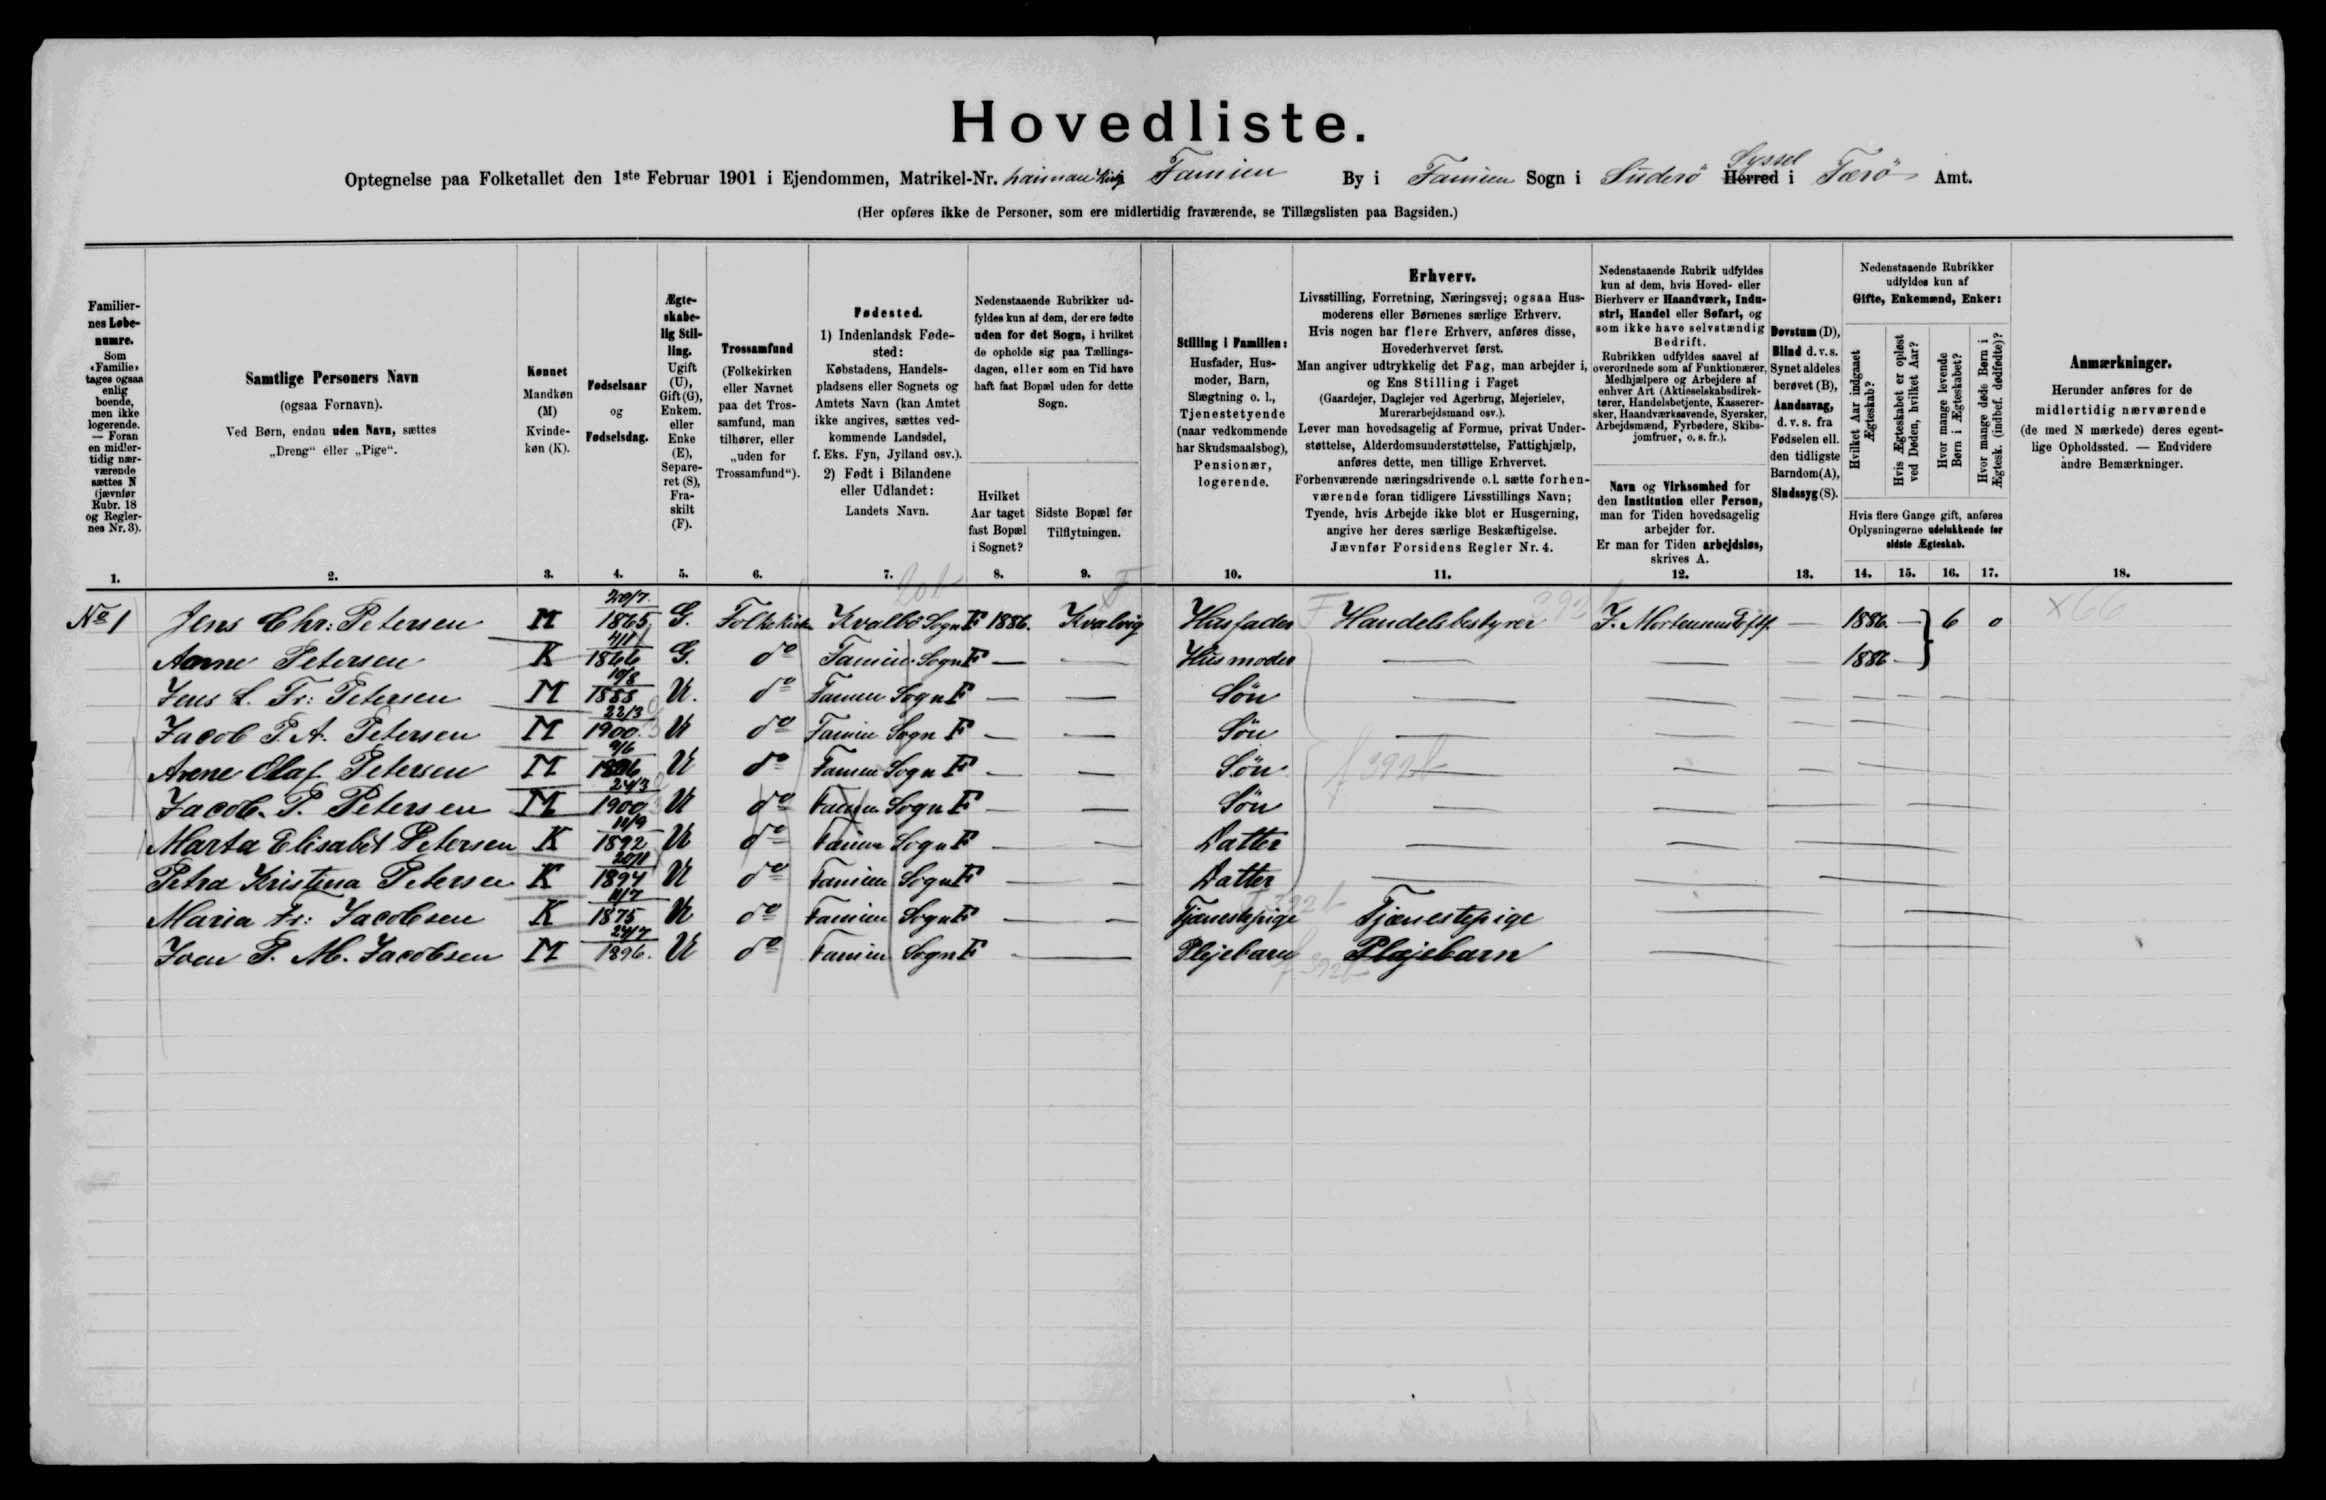 Hovedliste.
Optegnelse paa Folketallet den 1ste Februar 1901 i Ejendommen, Matrikel-Nr. Famien By i Famien Sogn i Suderø Syssel Herred i Færø Amt.
(Her opføres ikke de Personer, som ere midlertidig fraværende, se Tillægslisten paa Bagsiden.)
Familiernes Løbenumre.
Som «Familie» tages ogsaa enlig boende, men ikke logerende. — Foran en midlertidig nærværende sættes N (jævnfør Rubr. 18 og Reglernes Nr. 3).
Samtlige Personers Navn
(ogsaa Fornavn).
Ved Børn, endnu uden Navn, sættes
„Dreng“ eller „Pige“.
Kønnet
Mandkøn (M)
Kvindekøn (K).
Fødselsaar
og
Fødselsdag.
Ægteskabelig Stilling.
Ugift (U), Gift (G), Enkem. eller Enke (E), Separeret (S), Fraskilt (F).
Trossamfund
(Folkekirken eller Navnet paa det Trossamfund, man tilhører, eller „uden for Trossamfund“).
Fødested.
1) Indenlandsk Fødested:
Købstadens, Handelspladsens eller Sognets og Amtets Navn (kan Amtet ikke angives, sættes vedkommende Landsdel, f. Eks. Fyn, Jylland osv.).
2) Født i Bilandene eller Udlandet:
Landets Navn.
Nedenstaaende Rubrikker udfyldes kun af dem, der ere fødte uden for det Sogn, i hvilket de opholde sig paa Tællingsdagen, eller som en Tid have haft fast Bopæl uden for dette Sogn.
Hvilket Aar taget fast Bopæl i Sognet?
Sidste Bopæl før Tilflytningen.
Stilling i Familien:
Husfader, Husmoder, Barn, Slægtning o. l., Tjenestetyende (naar vedkommende har Skudsmaalsbog), Pensionær, logerende.
Erhverv.
Livsstilling, Forretning, Næringsvej; ogsaa Husmoderens eller Børnenes særlige Erhverv.
Hvis nogen har flere Erhverv, anføres disse, Hovederhvervet først.
Man angiver udtrykkelig det Fag, man arbejder i, og Ens Stilling i Faget
(Gaardejer, Daglejer ved Agerbrug, Mejerielev, Murerarbejdsmand osv.).
Lever man hovedsagelig af Formue, privat Understøttelse, Alderdomsunderstøttelse, Fattighjælp, anføres dette, men tillige Erhvervet.
Forhenværende næringsdrivende o. l. sætte forhenværende foran tidligere Livsstillings Navn;
Tyende, hvis Arbejde ikke blot er Husgerning, angive her deres særlige Beskæftigelse.
Jævnfør Forsidens Regler Nr. 4.
Nedenstaaende Rubrik udfyldes kun af dem, hvis Hoved- eller Bierhverv er Haandværk, Industri, Handel eller Søfart, og som ikke have selvstændig Bedrift.
Rubrikken udfyldes saavel af overordnede som af Funktionærer, Medhjælpere og Arbejdere af enhver Art (Aktieselskabsdirektører, Handelsbetjente, Kasserersker, Haandværkssvende, Syersker, Arbejdsmænd, Fyrbødere, Skibsjomfruer, o. s. fr.).
Navn og Virksomhed for den Institution eller Person, man for Tiden hovedsagelig arbejder for.
Er man for Tiden arbejdsløs, skrives A.
Døvstum (D), Blind d. v. s. Synet aldeles berøvet (B), Aandssvag, d. v. s. fra Fødselen ell. den tidligste Barndom (A), Sindssyg (S).
Nedenstaaende Rubrikker udfyldes kun af
Gifte, Enkemænd, Enker:
Hvilket Aar indgaaet Ægteskab?
Hvis Ægteskabet er opløst ved Døden, hvilket Aar?
Hvor mange levende Børn i Ægteskabet?
Hvor mange døde Børn i Ægtesk. (indbef. dødfødte)?
Hvis flere Gange gift, anføres Oplysningerne udelukkende for sidste Ægteskab.
Anmærkninger.
Herunder anføres for de midlertidig nærværende (de med N mærkede) deres egentlige Opholdssted. — Endvidere andre Bemærkninger.
1. 2. 3. 4. 5. 6. 7. 8. 9. 10. 11. 12. 13. 14. 15. 16. 17. 18.
No 1 Jens Chr: Petersen M 20/7 1865 G. Folkekirken Kvalbø Sogn F 1886. Kvalvig Husfader Handelsbestyrer J. Mortensens Eftf. — 1886 — 6 0 ×66
Anne Petersen K 4/1 1866 G. do Famien Sogn F — — Husmoder — — — 1886 —
Jens L. Fr: Petersen M 10/8 1888 U. do Famien Sogn F — — Søn
Jacob P. A. Petersen M 22/3 1900 U do Famien Sogn F — — Søn
Arene Olaf Petersen M 9/6 U do Famien Sogn F — — Søn f 392b
Jacob. P. Petersen M 24/3 1900 U do Famien Sogn F — — Søn
Marta Elisabet Petersen K 11/9 1892 U do Famien Sogn F — — Datter
Petra Kristina Petersen K 20/11 1894 U do Famien Sogn F — — Datter
Maria Fr: Jacobsen K 11/7 1875 U do Famien Sogn F — — Tjenestepige Tjænestepige
Joen P. M. Jacobsen M 24/7 1896. U do Famien Sogn F — Plejebarn Plejebarn